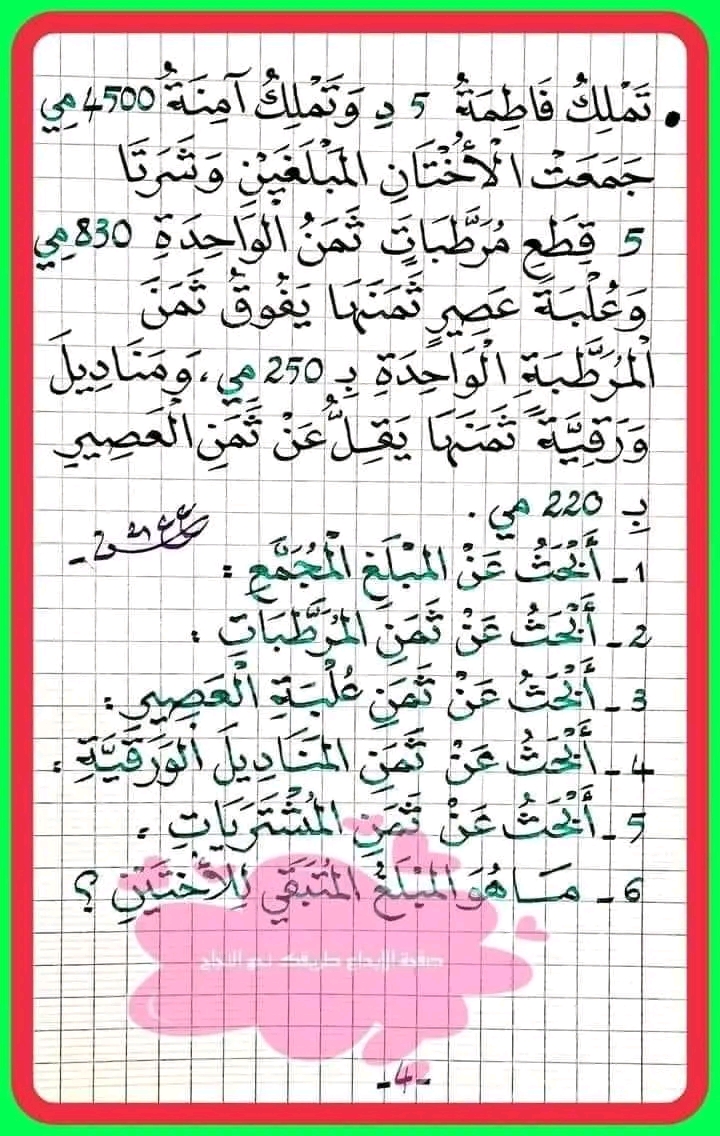 • تَمْلِكُ فَاطِمَةُ 5 دِ وَتَمْلِكُ آمِنَةُ 4500 مِي
جَمَعَتْ الْأُخْتَانِ المَبْلَغَيْنِ وَشَرَتَا
5 قِطَعِ مُرَطَّبَاتٍ ثَمَنُ الْوَاحِدَةِ 830 مِي
وَعُلْبَةَ عَصِيرٍ ثَمَنَهَا يَفُوقُ ثَمَنَ
الْمُرَطَّبَةِ الْوَاحِدَةِ بِـ 250 مي، وَمَنَادِيلَ
وَرَقِيَّةً ثَمَنَهَا يَقِلُّ عَنْ ثَمَنِ الْعَصِيرِ
بِـ 220 مي .
1 - أَبْحَثُ عَنْ المَبْلَغِ الْمُجَمَّعِ :
2 - أَبْحَثُ عَنْ ثَمَنِ المُرَطَّبَاتِ :
3 - أَبْحَثُ عَنْ ثَمَنِ عُلْبَةِ الْعَصِيرِ :
4 - أَبْحَثُ عَنْ ثَمَنِ المَنَادِيلَ الْوَرَقِيَّةِ :
5 - أَبْحَثُ عَنْ ثَمَنِ المُشْتَرَيَاتِ :
6 - مَا هُوَ المَبْلَغُ المُتَبَقِّي لِلْأُخْتَيْنِ ؟
صفحة الإبداع طريقك نحو النجاح
-4-